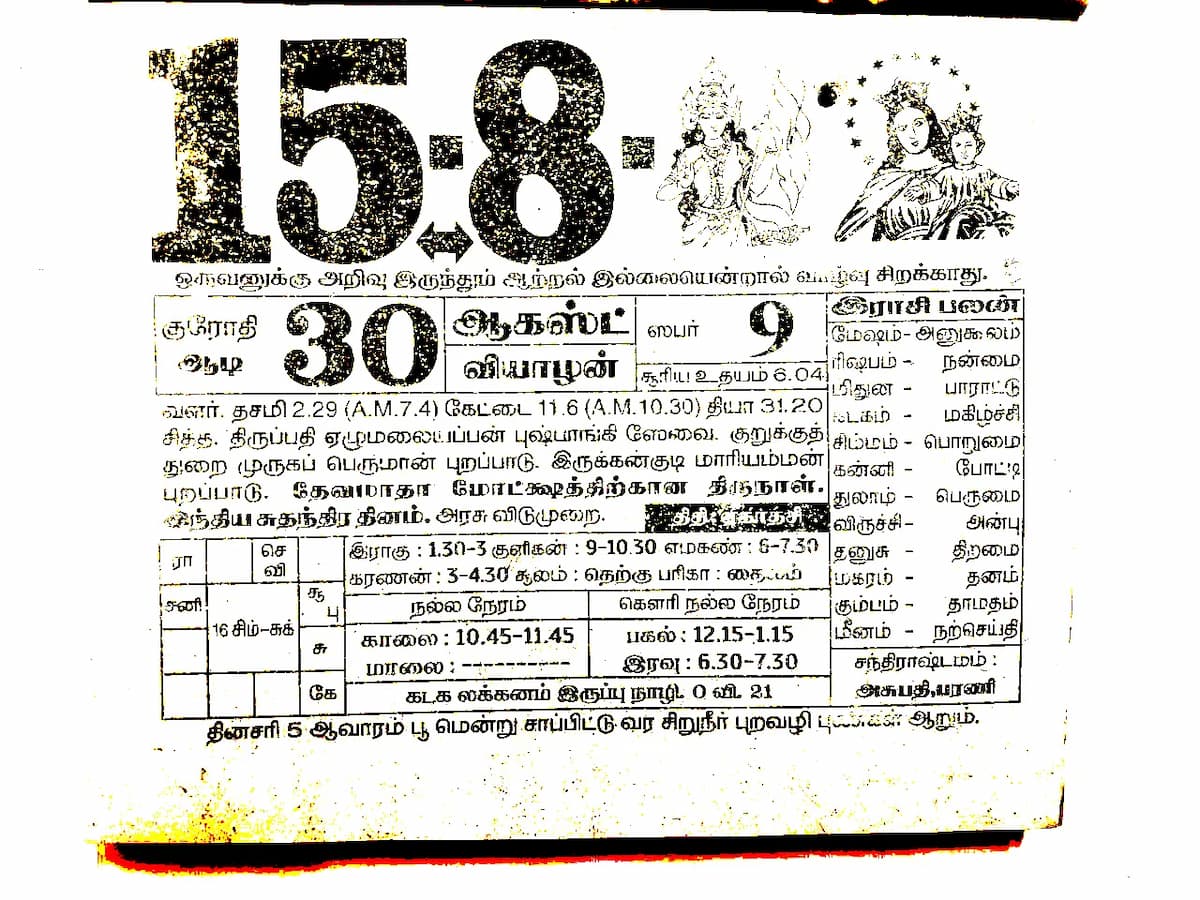 15-8-
ஒருவனுக்கு அறிவு இருந்தும் ஆற்றல் இல்லையென்றால் வாழ்வு சிறக்காது.
குரோதி
ஆடி
30
ஆகஸ்ட்
வியாழன்
ஸபர்
9
சூரிய உதயம் 6.04
வளர். தசமி 2.29 (A.M.7.4) கேட்டை 11.6 (A.M.10.30) தியா 31.20
சித்த. திருப்பதி ஏழுமலையப்பன் புஷ்பாங்கி ஸேவை. குறுக்குத்
துறை முருகப் பெருமான் புறப்பாடு. இருக்கன்குடி மாரியம்மன்
புறப்பாடு. தேவமாதா மோட்க்ஷத்திற்கான திருநாள்.
இந்திய சுதந்திர தினம். அரசு விடுமுறை.
திதி: ஏகாதசி
இராசி பலன்
மேஷம் - அனுகூலம்
ரிஷபம் - நன்மை
மிதுன - பாராட்டு
கடகம் - மகிழ்ச்சி
சிம்மம் - பொறுமை
கன்னி - போட்டி
துலாம் - பெருமை
விருச்சி - அன்பு
தனுசு - திறமை
மகரம் - தனம்
கும்பம் - தாமதம்
மீனம் - நற்செய்தி
சந்திராஷ்டமம் :
அசுபதி,பரணி
ரா
செ
வி
சனி
சூ
பு
16 சிம்-சுக்
சு
கே
இராகு : 1.30-3 குளிகன் : 9-10.30 எமகண் : 6-7.30
கரணன் : 3-4.30 சூலம் : தெற்கு பரிகா : தைலம்
நல்ல நேரம்
காலை : 10.45-11.45
மாலை : ----------
கௌரி நல்ல நேரம்
பகல் : 12.15-1.15
இரவு : 6.30-7.30
கடக லக்கனம் இருப்பு நாழி. 0 வி. 21
தினசரி 5 ஆவாரம் பூ மென்று சாப்பிட்டு வர சிறுநீர் புறவழி புண்கள் ஆறும்.